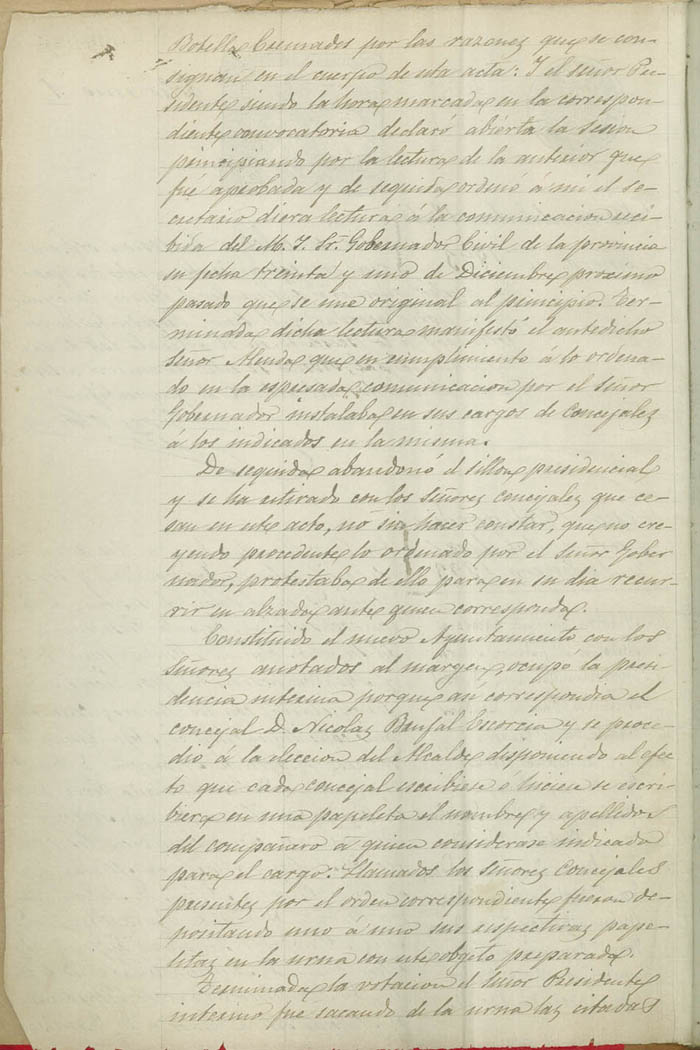 Botella Cremades por las razones que se con-
signan en el cuerpo de esta acta: Y el señor Pre-
sidente siendo la hora marcada en la correspon-
diente convocatoria declaró abierta la sesion
principiando por la lectura de la anterior que
fué aprobada y de seguida ordenó á mi el se-
cretario diera lectura á la comunicacion reci-
bida del M. I. Sr. Gobernador Civil de la provincia
su fecha treinta y uno de Diciembre proximo
pasado que se une original al principio. Ter-
minada dicha lectura manifestó el antedicho
señor Alcalde que en cumplimiento á lo ordena-
do en la espresada comunicacion por el señor
Gobernador instalaba en sus cargos de concejales
á los indicados en la misma.
De seguida abandonó el sillon presidencial
y se ha retirado con los señores concejales que ce-
san en este acto, no sin hacer constar, que no cre-
yendo procedente lo ordenado por el señor Gober
nador, protestaba de ello para en su dia recur-
rir en alzada ante quien corresponda.
Constituido el nuevo Ayuntamiento con los
señores anotados al margen, ocupó la presi-
dencia interina porque asi correspondia el
concejal D. Nicolas Escorcia y se proce-
dió á la eleccion del Alcalde disponiendo al efec
to que cada concejal escribiese ó hiciese se escri-
biera en una papeleta el nombre y apellidos
del compañero á quien considerase indicado
para el cargo: Llamados los señores concejales
presentes por el orden correspondiente fueron de-
positando uno á uno sus respectivas pape-
letas en la urna con este objeto preparada.
Terminada la votacion el señor Presidente
interino fue sacando de la urna las citadas